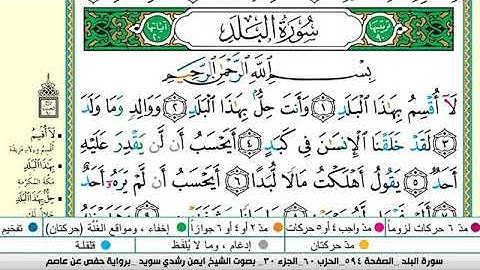 ترتيبها ٩٠
سُورَةُ الْبَلَدِ
آياتها ٢٠
بِسْمِ اللَّهِ الرَّحْمَٰنِ الرَّحِيمِ
لَا أُقْسِمُ بِهَٰذَا الْبَلَدِ ١ وَأَنتَ حِلٌّ بِهَٰذَا الْبَلَدِ ٢ وَوَالِدٍ وَمَا وَلَدَ
٣ لَقَدْ خَلَقْنَا الْإِنسَانَ فِي كَبَدٍ ٤ أَيَحْسَبُ أَن لَّن يَقْدِرَ عَلَيْهِ
أَحَدٌ ٥ يَقُولُ أَهْلَكْتُ مَالًا لُّبَدًا ٦ أَيَحْسَبُ أَن لَّمْ يَرَهُ أَحَدٌ
لا أقسم
أقسم ولا مزيدة
بهذا البلد
مكة المكرمة
مدّ ٦ حركات لزوماً
مدّ واجب ٤ أو ٥ حركات
مدّ ٢ أو ٤ أو ٦ جوازاً
إخفاء ، ومواقع الغُنَّة (حركتان)
تفخيم
مدّ حركتان
إدغام ، وما لا يُلفَظ
قلقلة
سورة البلد _الصفحة ٥٩٤_ الحزب ٦٠_الجزء ٣٠_ بصوت الشيخ ايمن رشدي سويد _برواية حفص عن عاصم